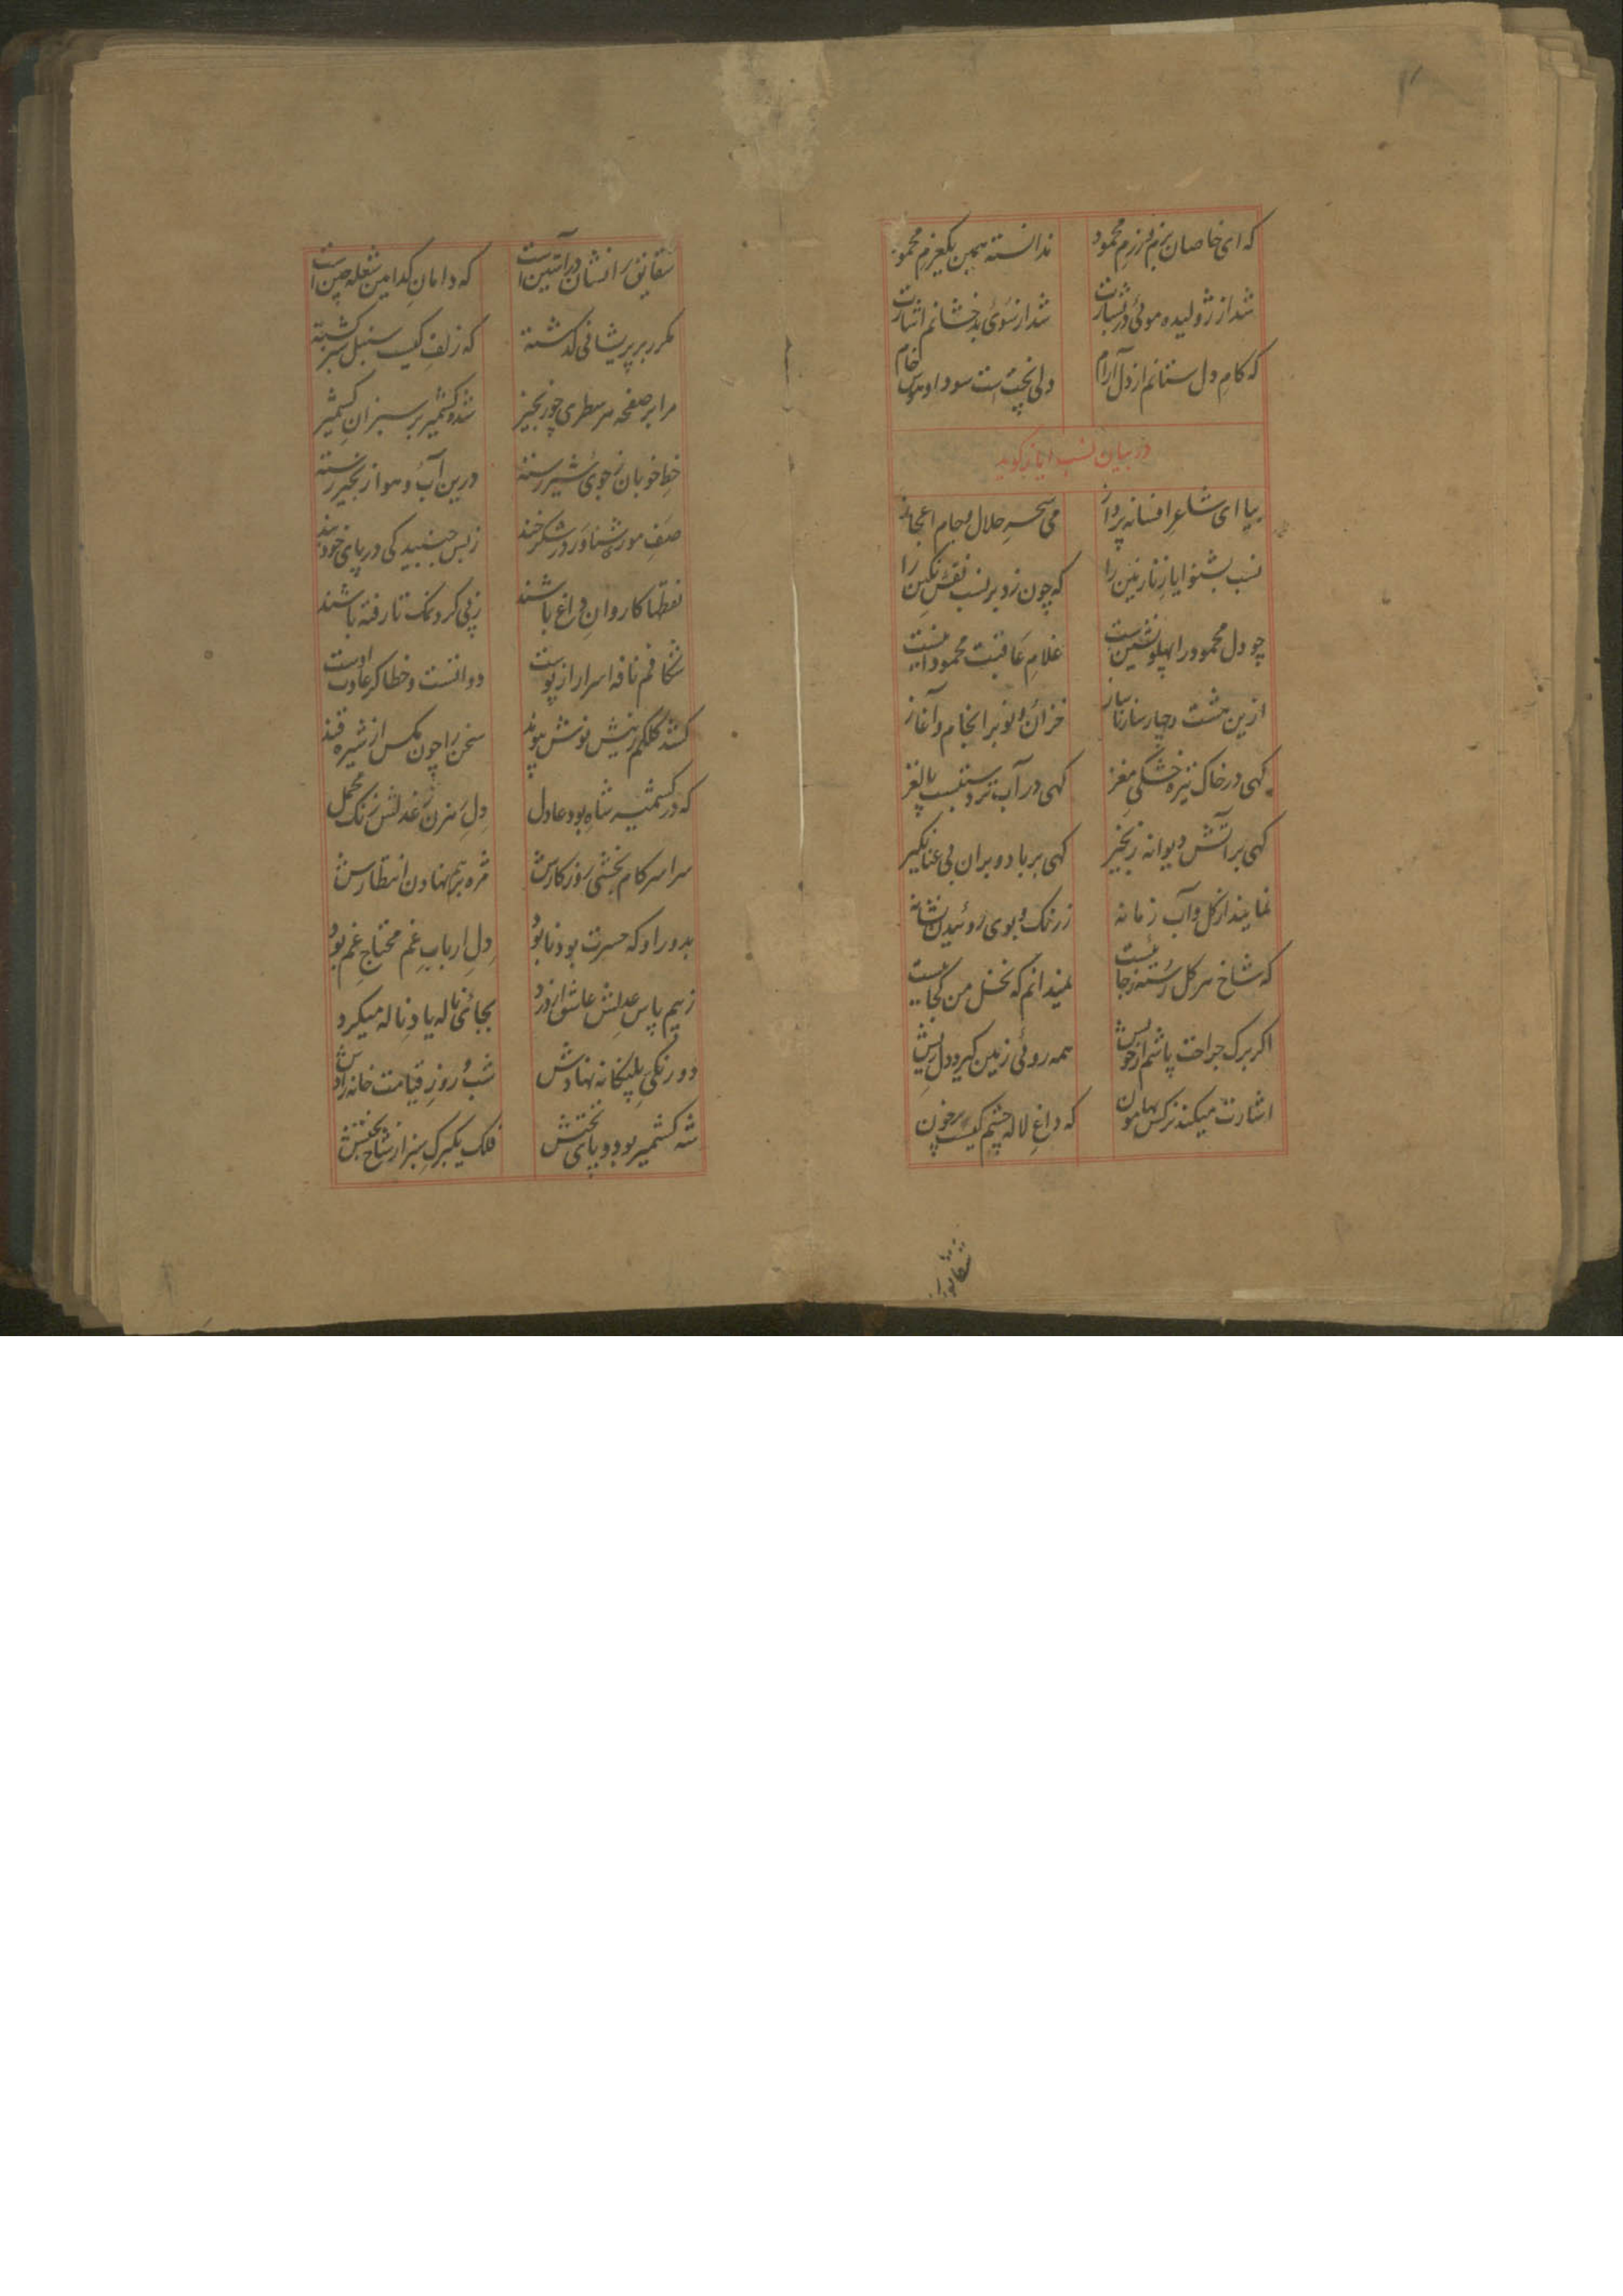 که ای خاصان بزم و رزم محمود ندانسته همین یکعزم محمود
شد از ژولیده موئی در بشارت شد از سوی بدخشانم اشارت
که کام دل ستانم از دل آرام دلی پختست سودا و هوس خام
در بیان نسب ایاز گوید
بیا ای شاعر افسانه پرداز می سحر حلال و جام اعجاز
نسب بشنو ایاز نازنین را که چون زد بر نسب نقش نگین را
چو دل محمود را پهلو نشین است غلام عاقبت محمود اینست
ازین هشت و چار ناز خزان و نوبر انجام و آغاز
گهی در خاک تیره خشکی مغز گهی در آب تر دستست پالغز
گهی بر آتش دیوانه زنجیر گهی بر باد و بران بی عنانگیر
نمایند از گل و آب زمانه ز رنگ و بوی روئیدن نشانه
که شاخ هر گل رسته ز جائیست نمیدانم که نخل من کجائیست
اگر برگ جراحت پاشم از خویش همه روئی زمین گیرد دل ریش
اشارت میکند نرگس بهامون که داغ لاله چشم کیست پرخون
شقایق
شقایق را نشان در آستین است که دامان کدامین شعله چین است
مکرر بر پریشانی گذشته که زلف کیست سنبل سبز گشته
مرا بر صفحه هر سطری چو زنجیر شده کشمیر بر سبزان کشمیر
خط خوبان ز جوی شیر رسته درین آب و هوا زنجیر رسته
صف موری شناور در شکرخند ز بس جنبید کی در پای خود بند
نقطها کاروان داغ باشند ز پی گرد نمک تا رفته باشند
شکافم نافه اسرار از پوست دوانست و خطا گر عادت اوست
کشد کلکم ز نیش نوش پیوند سخن را چون مگس از شیره قند
که در کشمیر شاه بود عادل دل رهزن ز عدلش زنگ محمل
سراسر کام بخشی روزگارش مژه برهم نهادن انتظارش
بدور او که حسرت بود نابود دل ارباب غم محتاج غم بود
ز بیم پاس عدلش عاشق از درد بجائی ناله یاد ناله میکرد
دو رنگی پلنگانه نهادش شب و روز قیامت خانه زادش
شه کشمیر بود و پای تختش فلک یکبرگ سبز از شاخ بختش